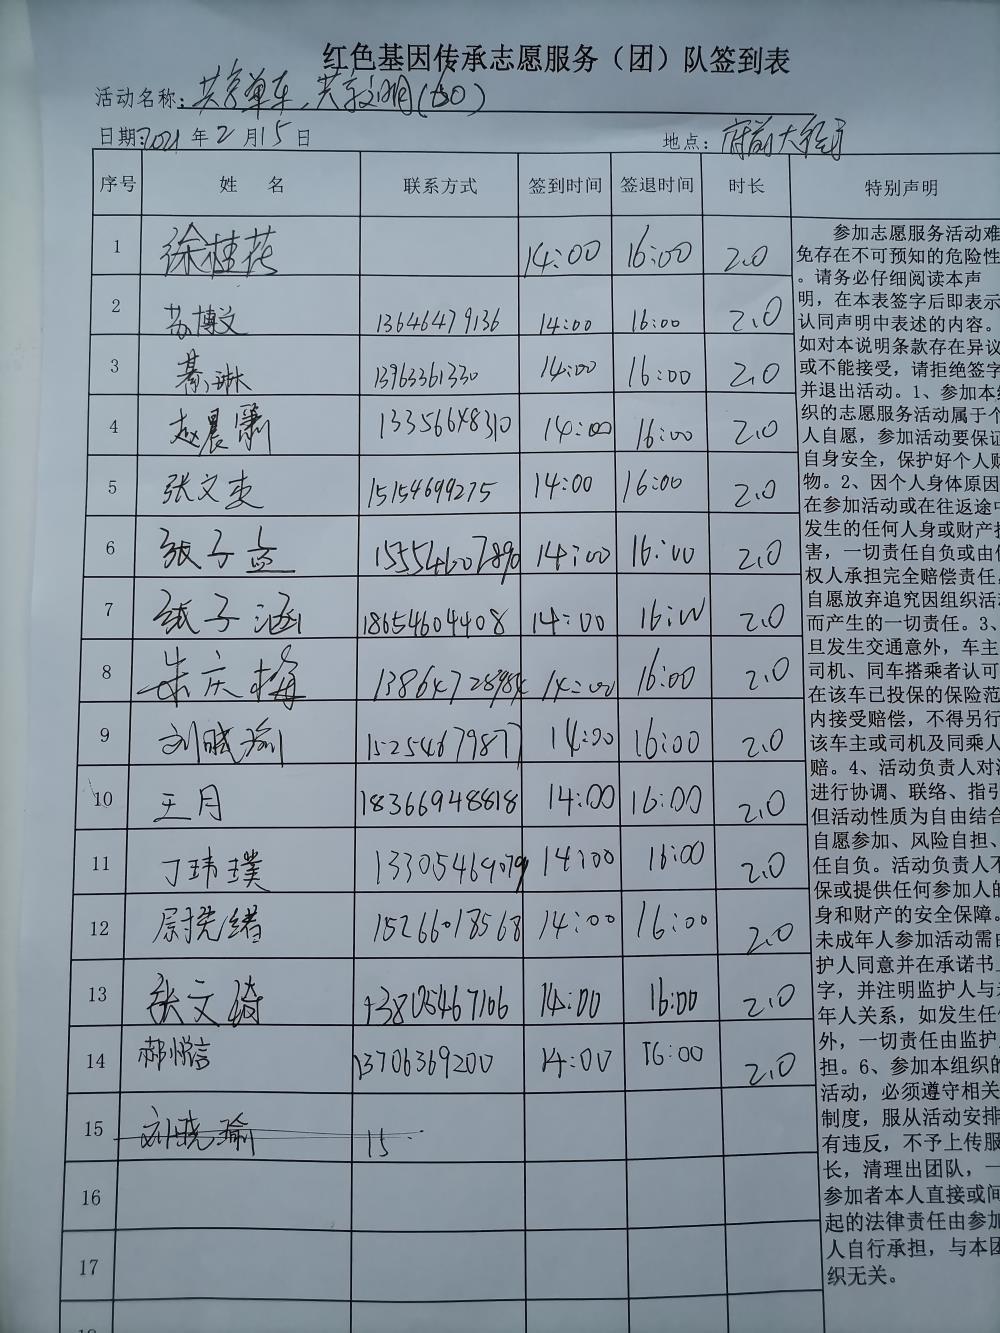 红色基因传承志愿服务（团）队签到表
活动名称：共享单车、共享文明（50）
日期：2021年2月15日 地点：府前大街
序号 姓名 联系方式 签到时间 签退时间 时长 特别声明
1 徐桂花 14:00 16:00 2.0
2 苏博文 13646479136 14:00 16:00 2.0
3 綦琳 13963361330 14:00 16:00 2.0
4 赵晨 13356648310 14:00 16:00 2.0
5 张文 15154699275 14:00 16:00 2.0
6 张子 15554607890 14:00 16:00 2.0
7 张子涵 18654604408 14:00 16:00 2.0
8 朱庆梅 14:00 16:00 2.0
9 刘晓瑜 15254679877 14:00 16:00 2.0
10 王月 18366948818 14:00 16:00 2.0
11 丁玮璞 13305469079 14:00 16:00 2.0
12 尉 绪 15266018568 14:00 16:00 2.0
13 张文琦 13805467106 14:00 16:00 2.0
14 郝悦言 13706369200 14:00 16:00 2.0
15 刘晓瑜 15
16
17
参加志愿服务活动难
免存在不可预知的危险性
。请务必仔细阅读本声
明，在本表签字后即表示
认同声明中表述的内容。
如对本说明条款存在异议
或不能接受，请拒绝签字
并退出活动。1、参加本组
织的志愿服务活动属于个
人自愿，参加活动要保证
自身安全，保护好个人财
物。2、因个人身体原因
在参加活动或在往返途中
发生的任何人身或财产损
害，一切责任自负或由侵
权人承担完全赔偿责任，
自愿放弃追究因组织活动
而产生的一切责任。3、
旦发生交通意外，车主
司机、同车搭乘者认可
在该车已投保的保险范
内接受赔偿，不得另行
该车主或司机及同乘人
赔。4、活动负责人对活
进行协调、联络、指引
但活动性质为自由结合
自愿参加、风险自担、
任自负。活动负责人不
保或提供任何参加人的
身和财产的安全保障。
未成年人参加活动需由
护人同意并在承诺书上
字，并注明监护人与未
年人关系，如发生任何
外，一切责任由监护人
担。6、参加本组织的
活动，必须遵守相关
制度，服从活动安排
有违反，不予上传服
长，清理出团队，一
参加者本人直接或间
起的法律责任由参加
人自行承担，与本团
织无关。